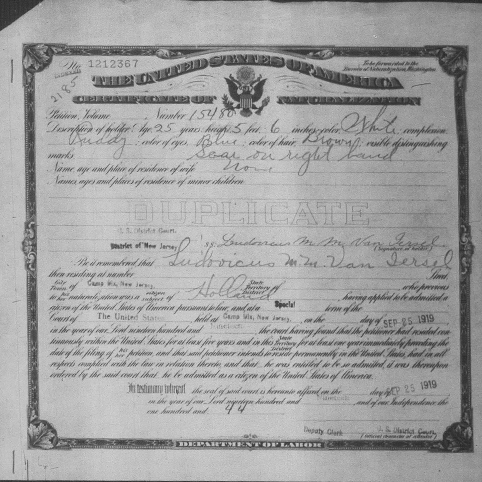 No. 1212367
To be forwarded to the
Bureau of Naturalization, Washington.
2185
THE UNITED STATES OF AMERICA
CERTIFICATE OF NATURALIZATION
Petition, Volume Number 15480
Description of holder: Age, 25 years; height, 5 feet, 6 inches; color, White; complexion,
Ruddy; color of eyes, Blue; color of hair, Brown; visible distinguishing
marks, Scar on right hand
Name, age and place of residence of wife None
Names, ages and places of residence of minor children
DUPLICATE
U. S. District Court,
District of New Jersey ss. Ludovicus M. M. Van Iersel
(Signature of holder)
Be it remembered, that Ludovicus M. M. Van Iersel
then residing at number Street
City Town of Camp Dix, New Jersey. State Territory District of , who previous
to his naturalization was a citizen subject of Holland , having applied to be admitted a
citizen of the United States of America pursuant to law, and at a Special term of the
Court of The United States held at Camp Dix, New Jersey. on the day of SEP 25 1919
in the year of our Lord nineteen hundred and , the court having found that the petitioner had resided con-
tinuously within the United States for at least five years and in this State Territory District for at least one year immediately preceding the
day of the filing of his petition, and that said petitioner intends to reside permanently in the United States, had in all
respects complied with the law in relation thereto, and that he was entitled to be so admitted, it was thereupon
ordered by the said court that he be admitted as a citizen of the United States of America.
In testimony whereof the seal of said court is hereunto affixed on the day of SEP 25 1919
in the year of our Lord nineteen hundred and , and of our Independence the
one hundred and 44
Deputy Clerk U. S. District Court,
(Official character of attestor.)
DEPARTMENT OF LABOR